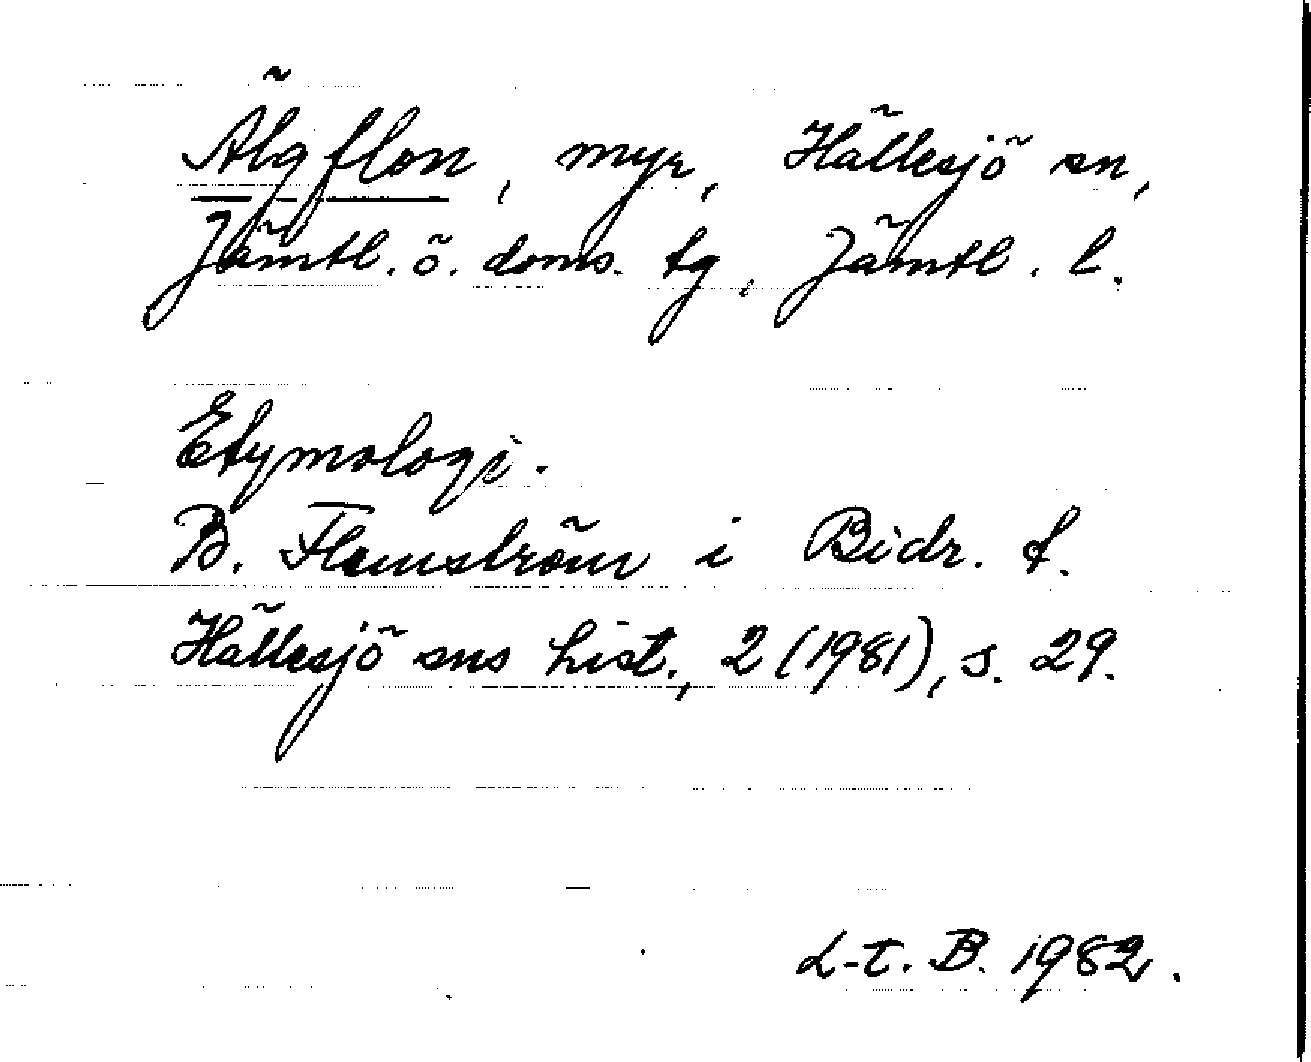 Älgflon, myr, Hällesjö sn,
Jämtl. ö. doms. tg, Jämtl. l.
Etymologi.
B. Flemström i Bidr. t.
Hällesjö sns hist., 2 (1981), s. 29.
L-t. B. 1982.